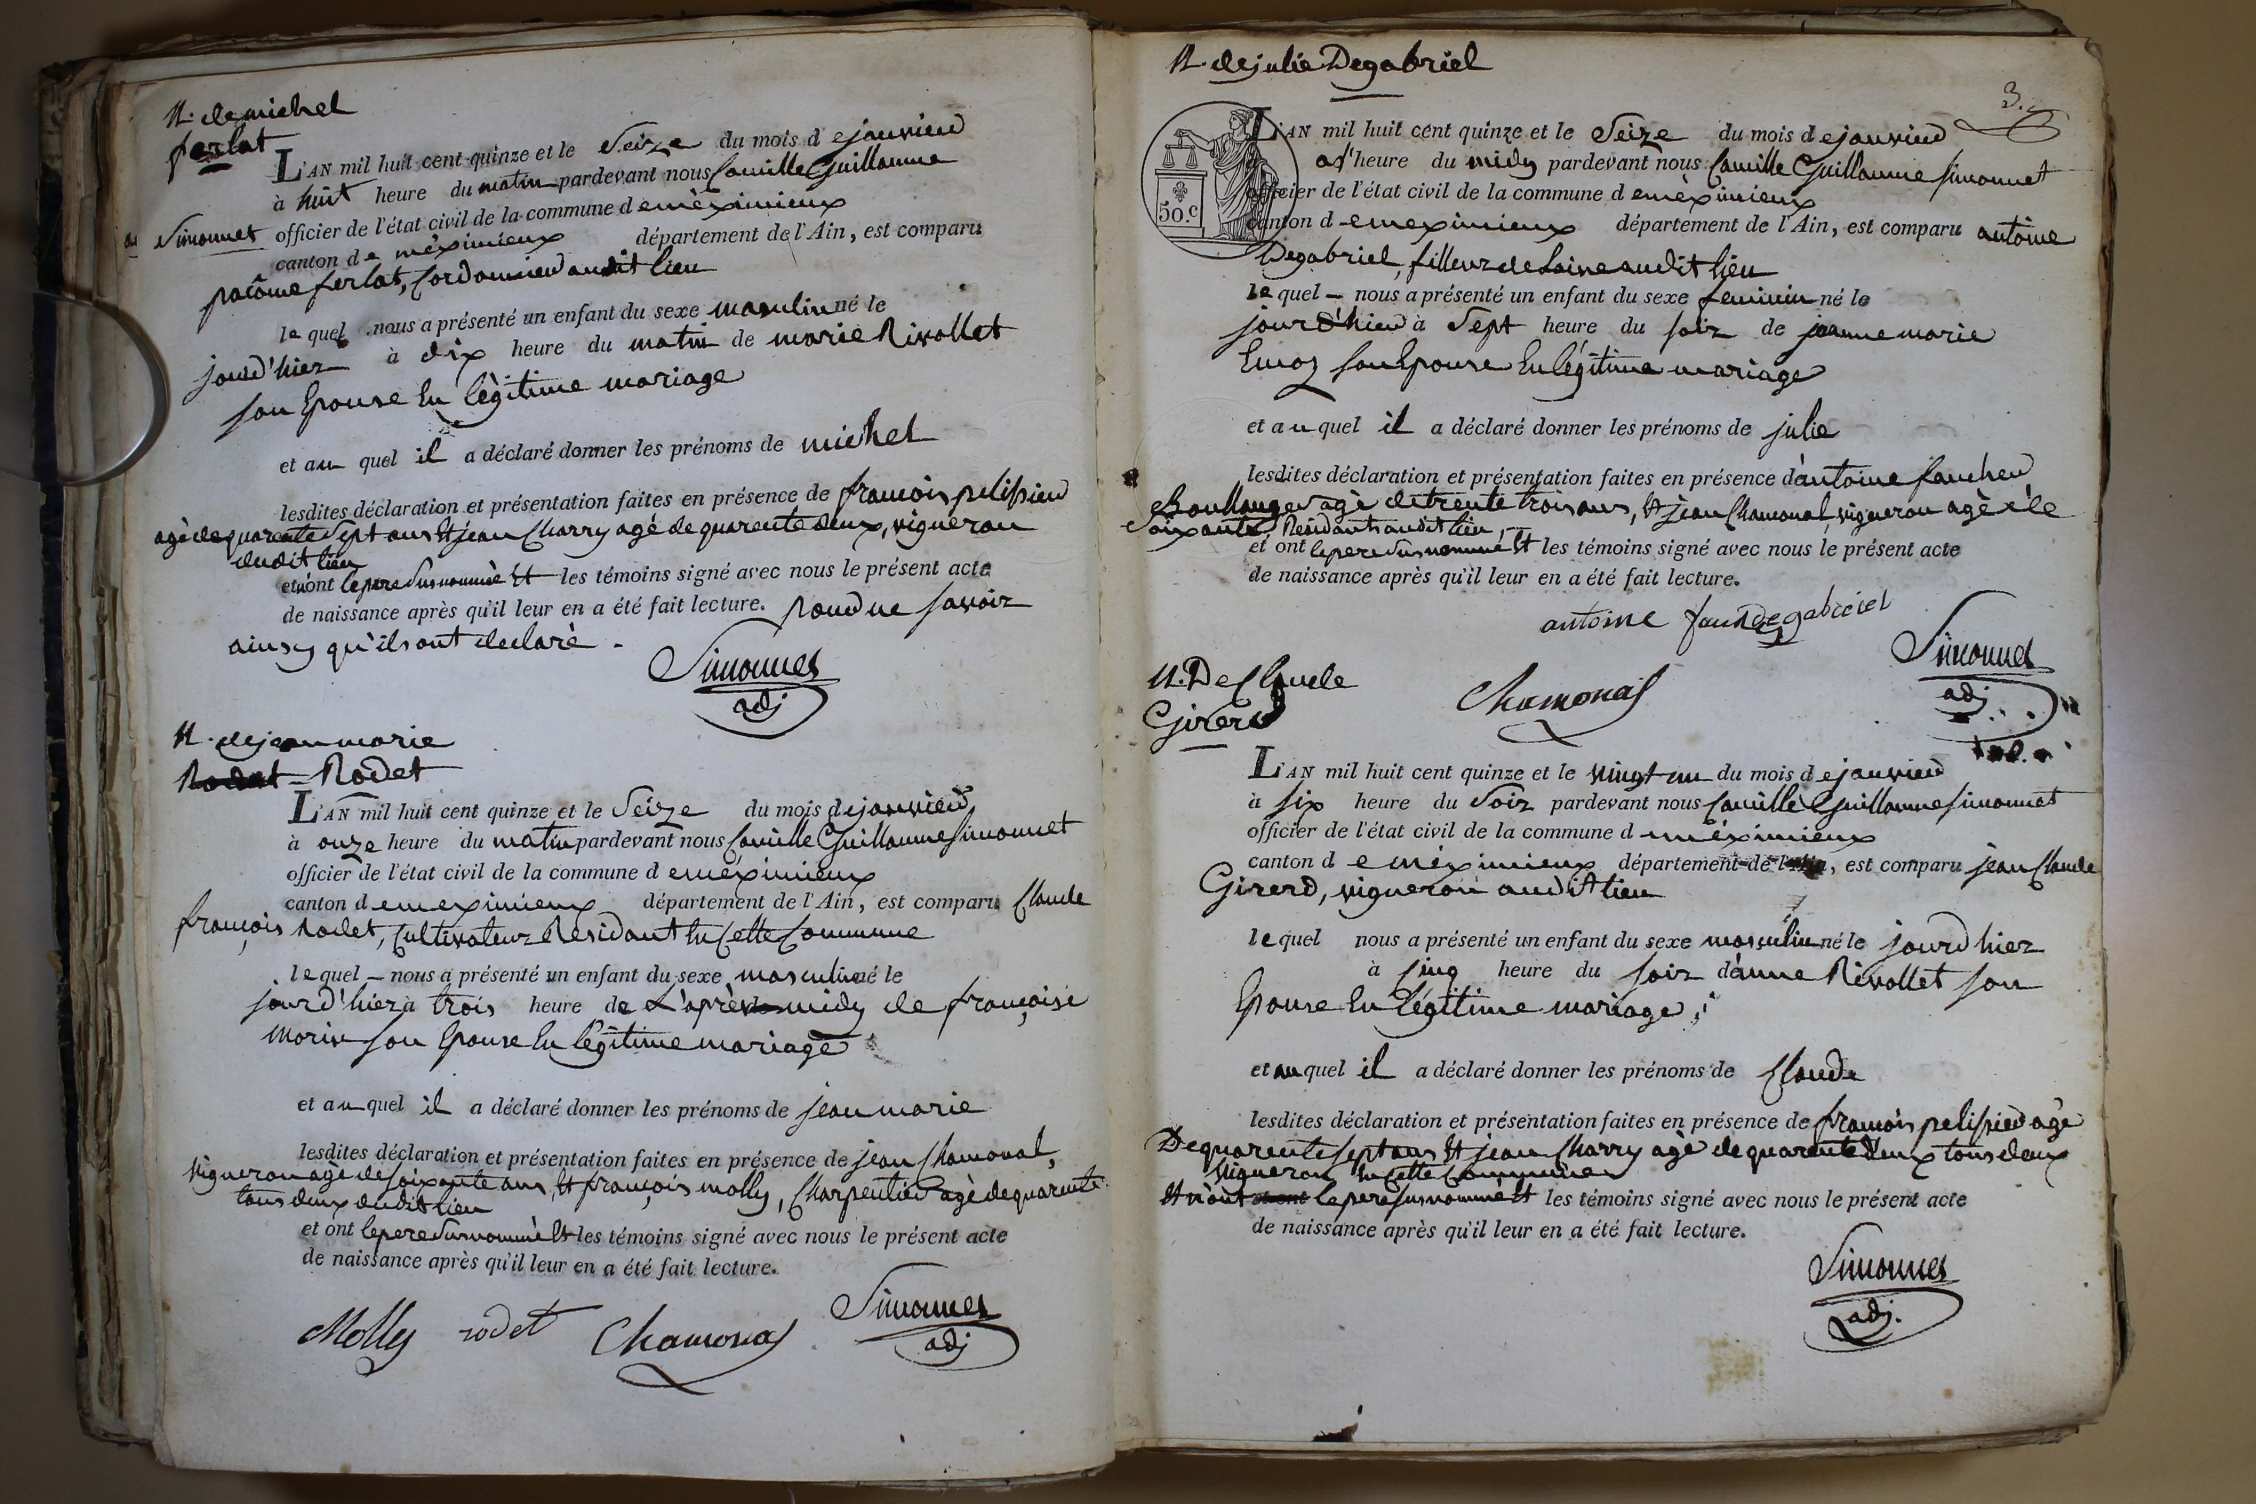 N. de michel
ferlat
L'AN mil huit cent quinze et le Seize du mois de janvier
à huit heure du matin pardevant nous Camille Guillaume
Simonnet officier de l'état civil de la commune de méximieux
canton de méximieux département de l'Ain, est comparu
pacôme ferlat, Cordonnier audit lieu
lequel nous a présenté un enfant du sexe masculin né le
jourd'hier à dix heure du matin de marie Rivollet
son Epouse En lègitime mariage
et au quel il a déclaré donner les prénoms de michel
lesdites déclaration et présentation faites en présence de françois pelissier
agè de quarente Sept ans Et jean Charry agé de quarente deux, vigneron
dudit lieu
et n'ont le pere Susnommè Et les témoins signé avec nous le présent acte
de naissance après qu'il leur en a été fait lecture. pour ne savoir
ainsy qu'ils ont declarè.
Simonnet
adj
N. de jean marie
Rodet
L'AN mil huit cent quinze et le Seize du mois de janvier
à onze heure du matin pardevant nous Camille Guillaume Simonnet
officier de l'état civil de la commune de méximieux
canton de meximieux département de l'Ain, est comparu Claude
françois Rodet, Cultivateur Residant En Cette Commune
lequel nous a présenté un enfant du sexe masculin né le
jourd'hier à trois heure de L'après midy de françoise
Morin son Epouse En lègitime mariage
et au quel il a déclaré donner les prénoms de jean marie
lesdites déclaration et présentation faites en présence de jean Chamonal,
vigneron agè de soixante ans, Et françois molly, Charpentier agè de quarente
tous deux dudit lieu
et ont le pere Susnommè Et les témoins signé avec nous le présent acte
de naissance après qu'il leur en a été fait lecture.
Molly rodet Chamonal Simonnet
adj
N. de julie Degabriel
3.
L'AN mil huit cent quinze et le Seize du mois de janvier
heure du midy pardevant nous Camille Guillaume Simonnet
officier de l'état civil de la commune de méximieux
50.c
canton de meximieux département de l'Ain, est comparu antoine
Degabriel, filleur de Laine audit lieu
lequel nous a présenté un enfant du sexe feminin né le
jourd'hier à Sept heure du soir de jeanne marie
Emoz son Epouse En légitime mariage
et au quel il a déclaré donner les prénoms de julie
lesdites déclaration et présentation faites en présence d'antoine faucher
Boullanger agè de trente trois ans, Et jean Chamonal vigneron agè de
Soixante, Residants audit lieu,
et ont le pere Susnommè Et les témoins signé avec nous le présent acte
de naissance après qu'il leur en a été fait lecture.
antoine Degabriel
Simonnet
adj
Chamonal
N. De Claude
Girerd
L'AN mil huit cent quinze et le vingt un du mois de janvier
à six heure du Soir pardevant nous Camille Guillaume Simonnet
officier de l'état civil de la commune de méximieux
canton de méximieux département de l'Ain, est comparu jean Claude
Girerd, vigneron audit lieu
lequel nous a présenté un enfant du sexe masculin né le jourd'hier
à Cinq heure du soir d'anne Rivollet son
Epouse En légitime mariage,
et au quel il a déclaré donner les prénoms de Claude
lesdites déclaration et présentation faites en présence de françois pelissier agè
De quarente Sept ans Et jean Charry agè de quarente Deux tous deux
vigneron En Cette Commune
Et n'ont le pere susnommè Et les témoins signé avec nous le présent acte
de naissance après qu'il leur en a été fait lecture.
Simonnet
adj.